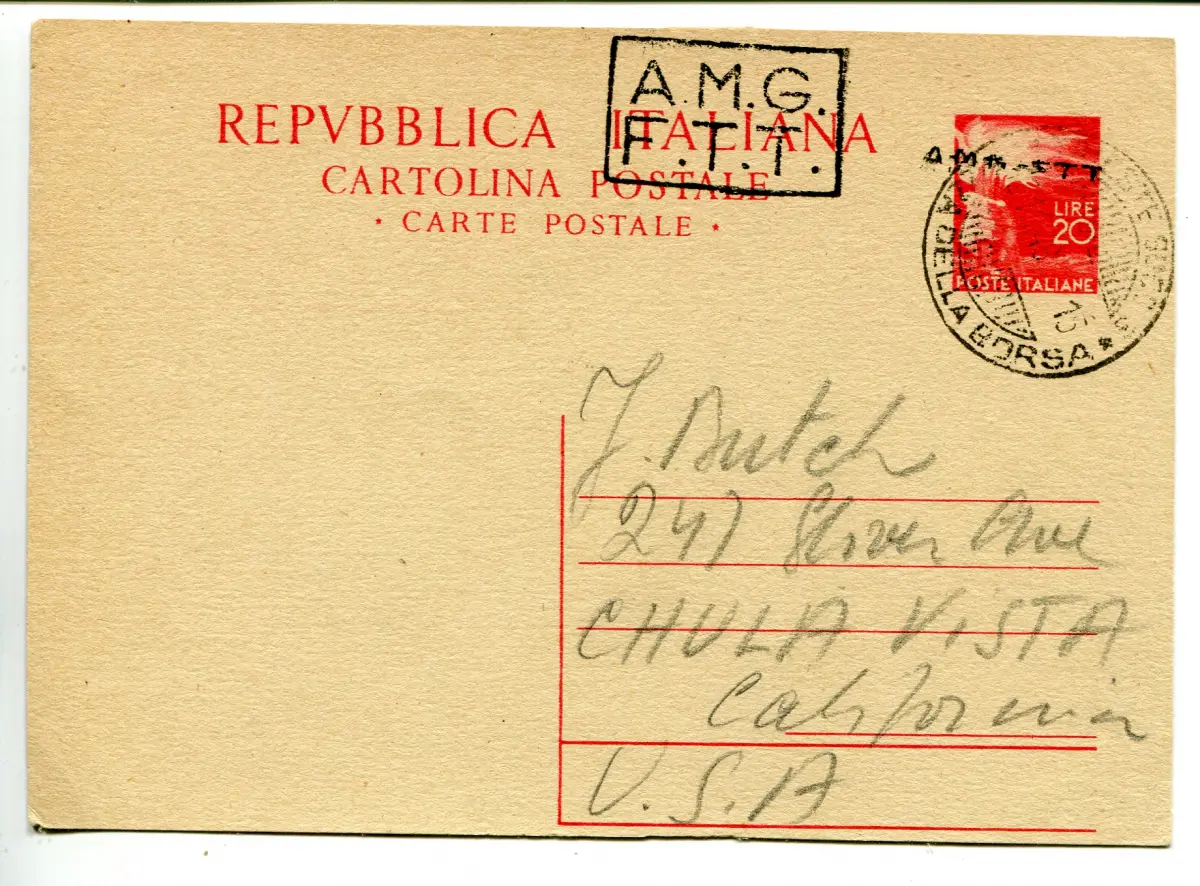 A.M.G.
F.T.T.
REPVBBLICA ITALIANA
CARTOLINA POSTALE
· CARTE POSTALE ·
AMG-FTT
LIRE
20
POSTE ITALIANE
DELLA BORSA *
15
J. Butch
247 Ave
CHULA VISTA
California
U.S.A